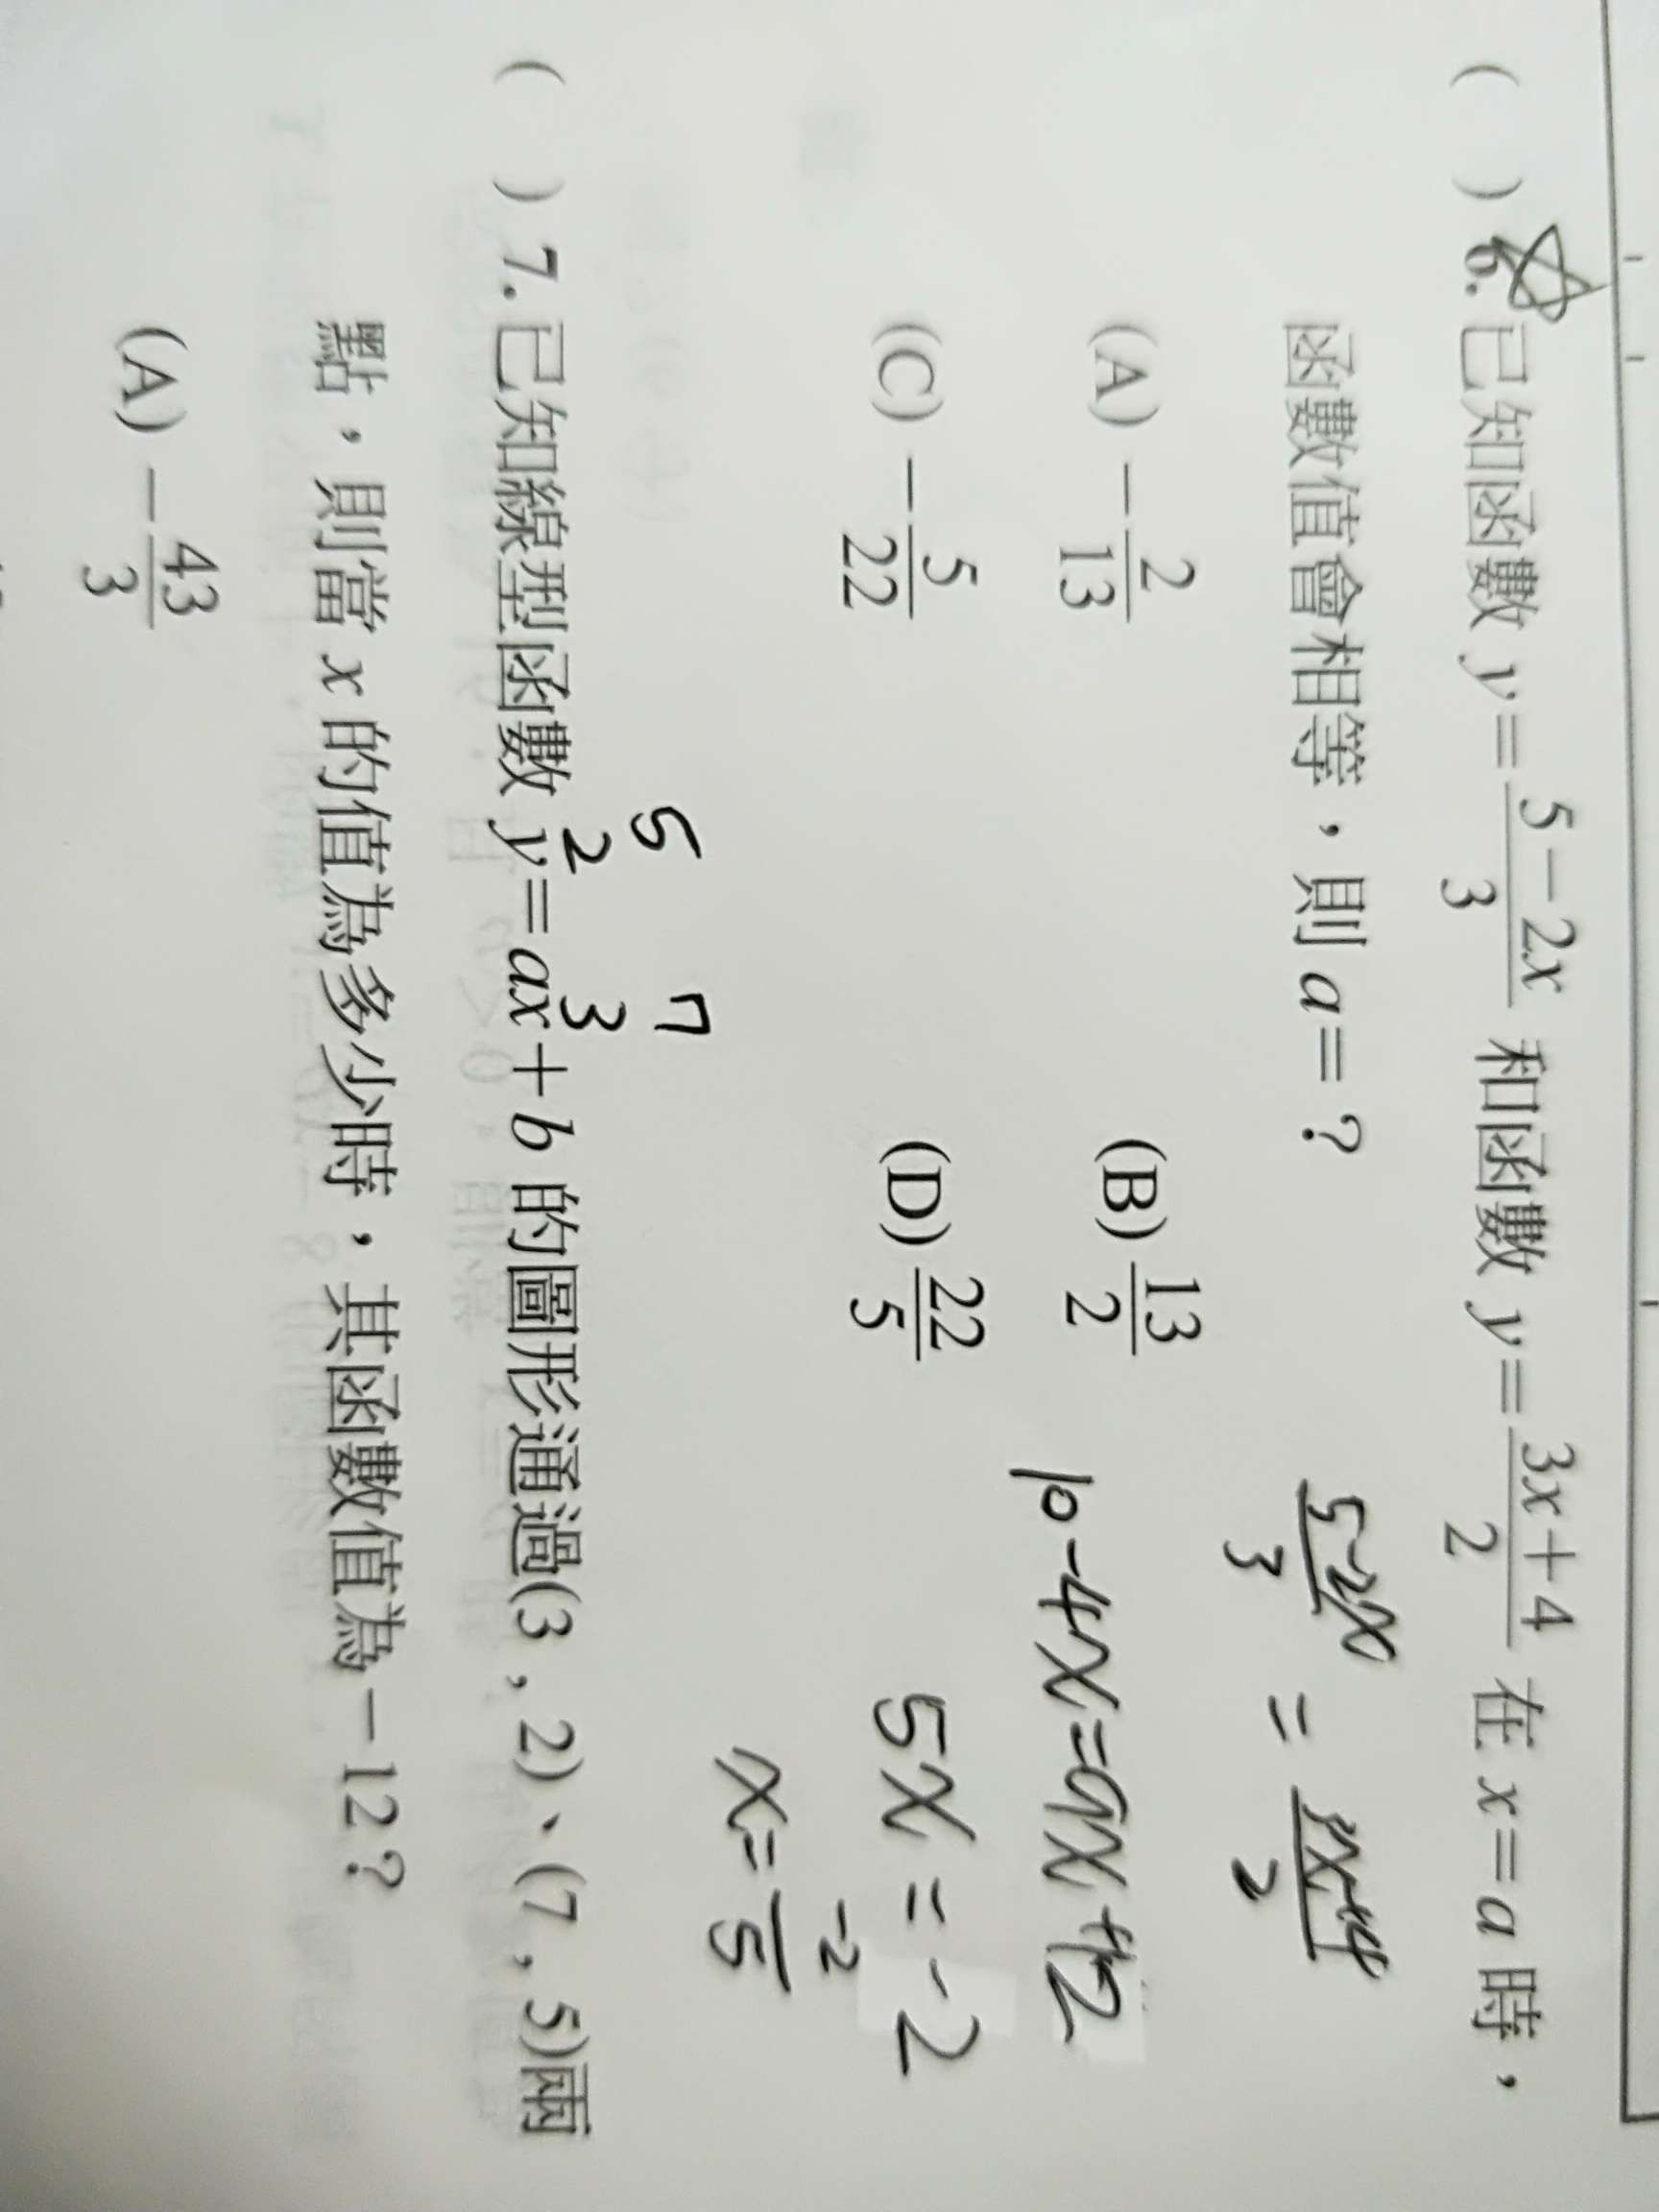 ( ) 6. 已知函數 y = (5-2x)/3 和函數 y = (3x+4)/2 在 x = a 時，
函數值會相等，則 a = ?
(A) -2/13 (B) 13/2
(C) -5/22 (D) 22/5
(5-2x)/3 = (3x+4)/2
10-4x=9x+12
5x=-2
x=-2/5
5 7
2 3
( ) 7. 已知線型函數 y = ax + b 的圖形通過(3 , 2)、(7 , 5)兩
點，則當 x 的值為多少時，其函數值為-12？
(A) -43/3